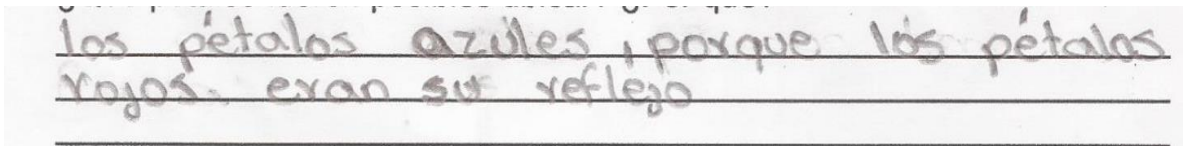 los pétalos azules, porque los pétalos
rojos. eran su reflejo